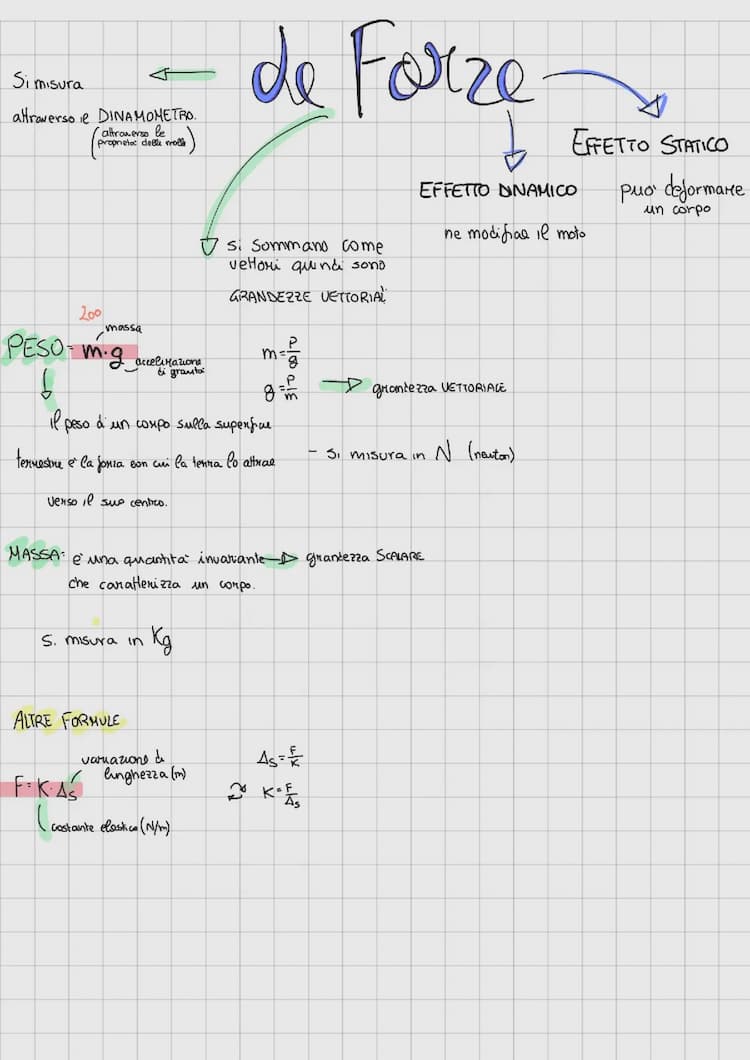 le Forze
Si misura
attraverso il DINAMOMETRO.
(attraverso le
proprietà delle molle)
EFFETTO STATICO
può deformare
un corpo
EFFETTO DINAMICO
ne modifica il moto
si sommano come
vettori quindi sono
GRANDEZZE VETTORIALI
200
massa
PESO = m·g
accelerazione
di gravità
m = P/g
g = P/m
grandezza VETTORIALE
il peso di un corpo sulla superficie
terrestre è la forza con cui la terra lo attrae
verso il suo centro.
- Si misura in N (newton)
MASSA: è una quantità invariante
grandezza SCALARE
che caratterizza un corpo.
Si misura in Kg
ALTRE FORMULE
variazione di
lunghezza (m)
F = K·Δs
costante elastica (N/m)
Δs = F/K
K = F/Δs